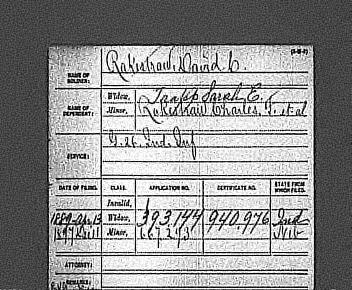 NAME OF SOLDIER: Rakestraw, David C
NAME OF DEPENDENT: Widow, Trapp Sarah E.
Minor, Rakestraw Charles, F. et al
SERVICE: G. 26. Ind. Inf
DATE OF FILING. CLASS. APPLICATION NO. CERTIFICATE NO. STATE FROM WHICH FILED.
Invalid,
1889 Apr 13 Widow, 393,144 940,976 Ind
1897 Minor,
ATTORNEY:
REMARKS: